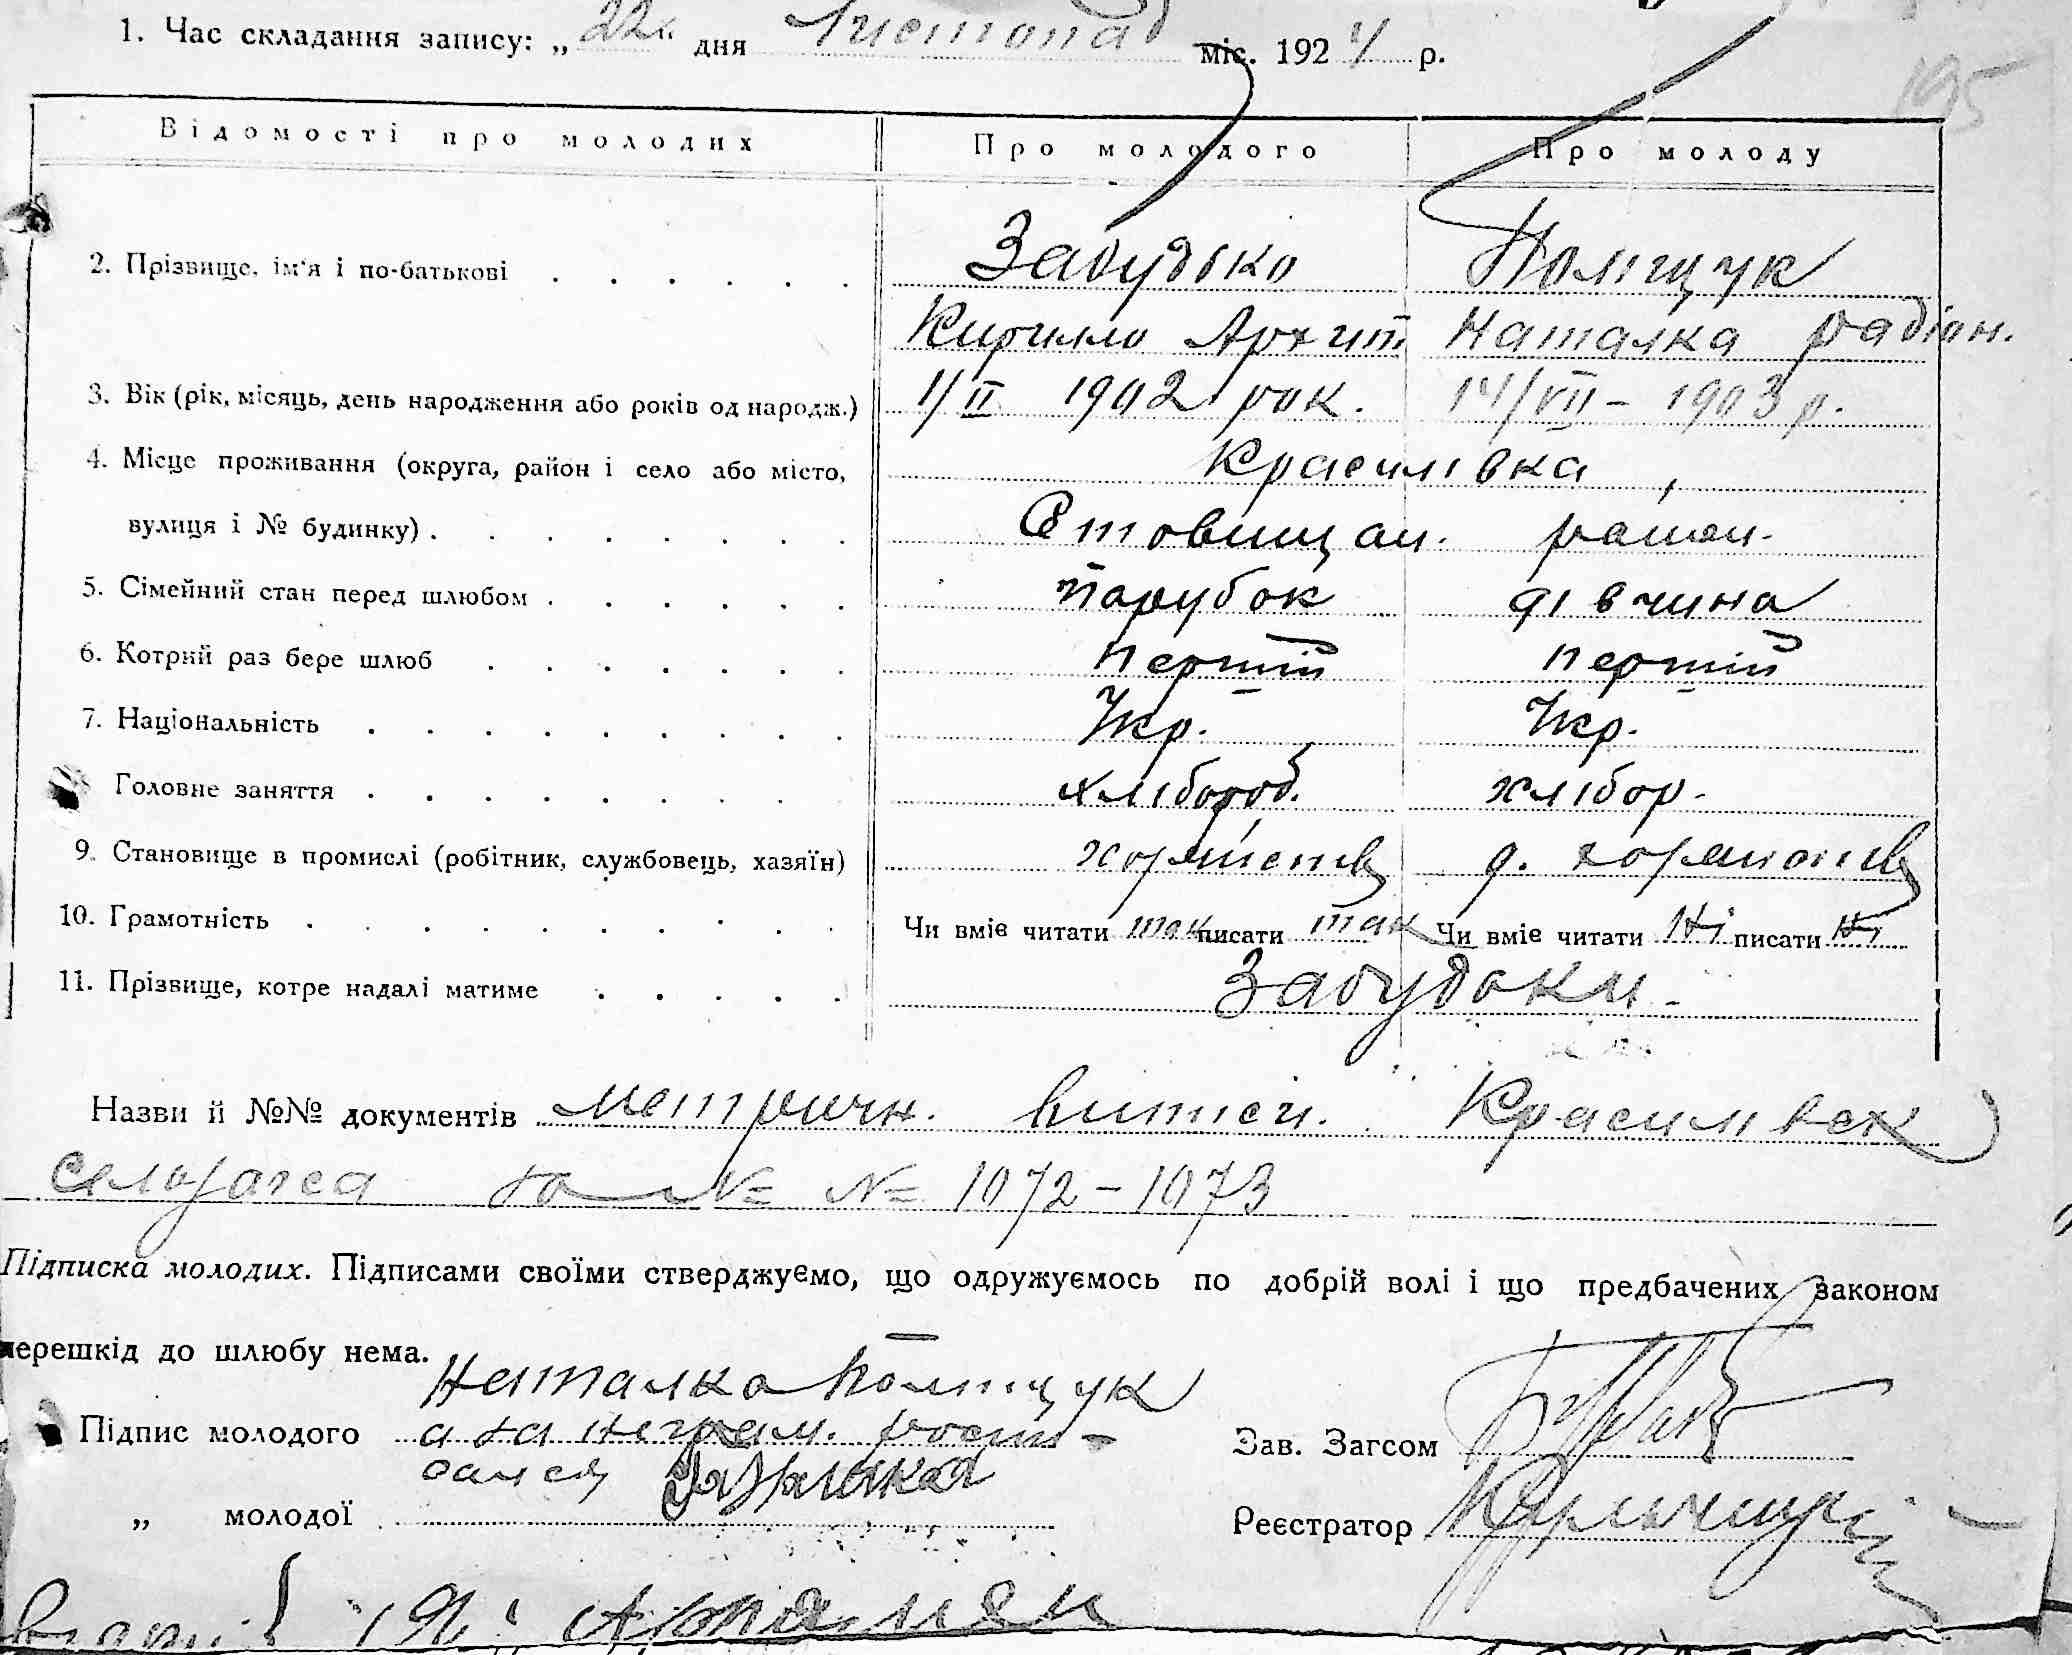 1. Час складання запису: „22“ дня Листопад міс. 1924 р.
195
Відомості про молодих Про молодого Про молоду
2. Прізвище, ім'я і по-батькові Забудько Поліщук
Кирилло Архип. Наталка Радіон.
3. Вік (рік, місяць, день народження або років од народж.) 1/II 1902 рок. 14/VII – 1903 р.
4. Місце проживання (округа, район і село або місто, Красилівка,
вулиця і № будинку) Ставищан. район.
5. Сімейний стан перед шлюбом парубок дівчина
6. Котрий раз бере шлюб перший перший
7. Національність Укр. Укр.
Головне заняття хлібороб. хлібор.
9. Становище в промислі (робітник, службовець, хазяїн)
10. Грамотність Чи вміє читати так писати так Чи вміє читати Ні писати Ні
11. Прізвище, котре надалі матиме Забудьки
Назви й №№ документів метричн. витяги. Красилівск
за № № 1072–1073
Підписка молодих. Підписами своїми стверджуємо, що одружуємось по добрій волі і що предбачених законом
перешкід до шлюбу нема.
Наталка Поліщук
Підпис молодого а за неграм. роспи-
сался
„ молодої
Зав. Загсом
Реєстратор